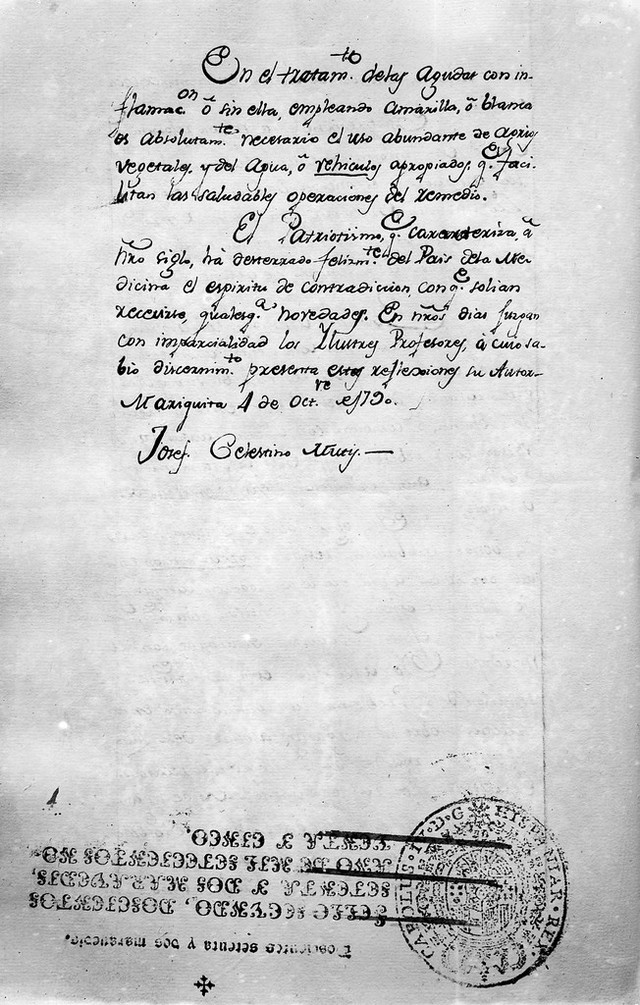 En el tratam.to delas Agudas con in-
flamac.on ô sin ella, empleando amarilla, ô blanca
es absolutam.te necesario el uso abundante de Agrios
vegetales, y del Agua, û vehiculos apropiados, q.e faci-
litan las saludables operaciones del remedio.
El Patriotismo, q.e caracteriza, â
nrõ siglo, hà desterrado felizm.te del Pais dela Me-
dicina el espiritu de contradiccion, con q.e solian
recevirse, qualesq.a novedades. En nrõs dias juzgan
con imparcialidad los Ilustres Profesores, à cuio sa-
bio discernim.to presenta estas reflexiones su Autor-
Mariquita 4 de Oct.re de 1790.
Josef Celestino Mutis.
CAROLUS · IV · D · G · HISPANIAR · REX
SELLO SEGVNDO, DOSCIENTOS
SETENTA Y DOS MARAVEDIS,
AÑO DE MIL SETECIENTOS NO-
VENTA Y CINCO.
Doscientos setenta y dos maravedis.